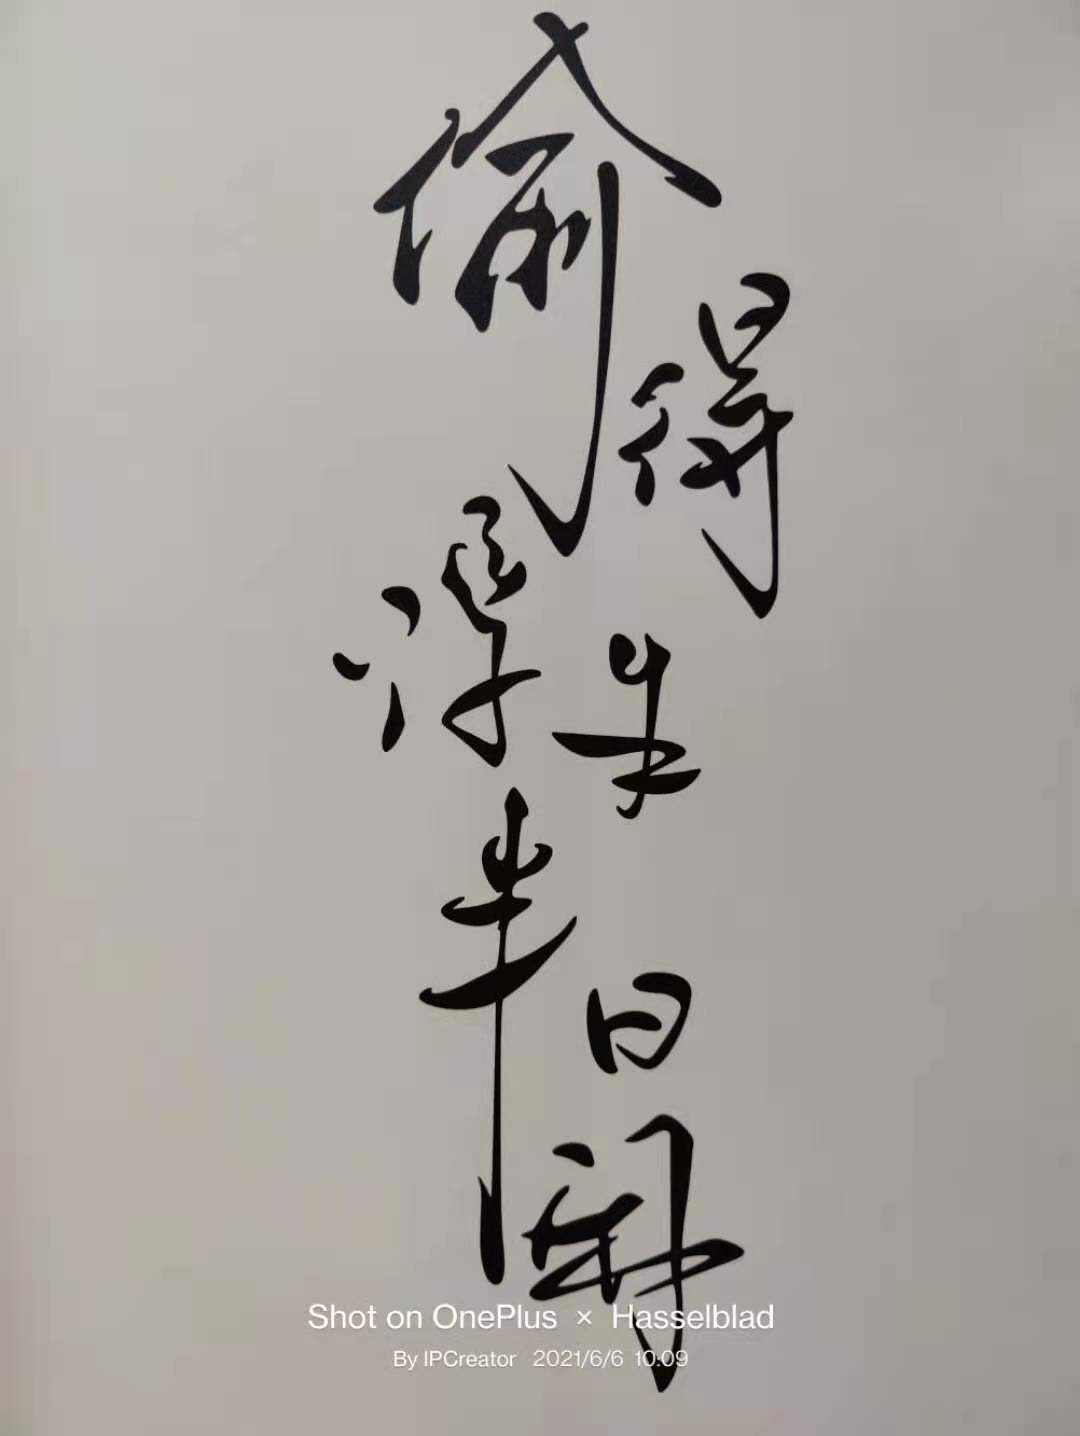 偷得浮生半日闲
Shot on OnePlus × Hasselblad
By IPCreator 2021/6/6 10:09